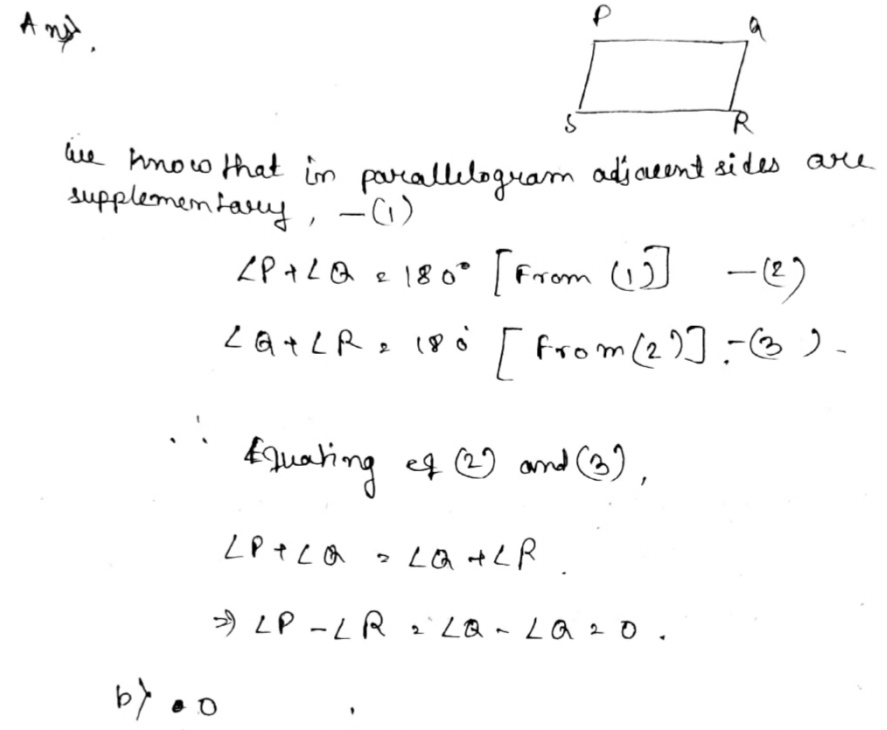 Ans).
P
Q
S
R
We know that in parallelogram adjacent sides are
supplementary, —(1)
∠P+∠Q = 180° [From (1)] —(2)
∠Q+∠R = 180° [From (2)] —(3).
∴ Equating eq (2) and (3),
∠P+∠Q = ∠Q+∠R.
⇒ ∠P-∠R = ∠Q-∠Q = 0.
b) 0